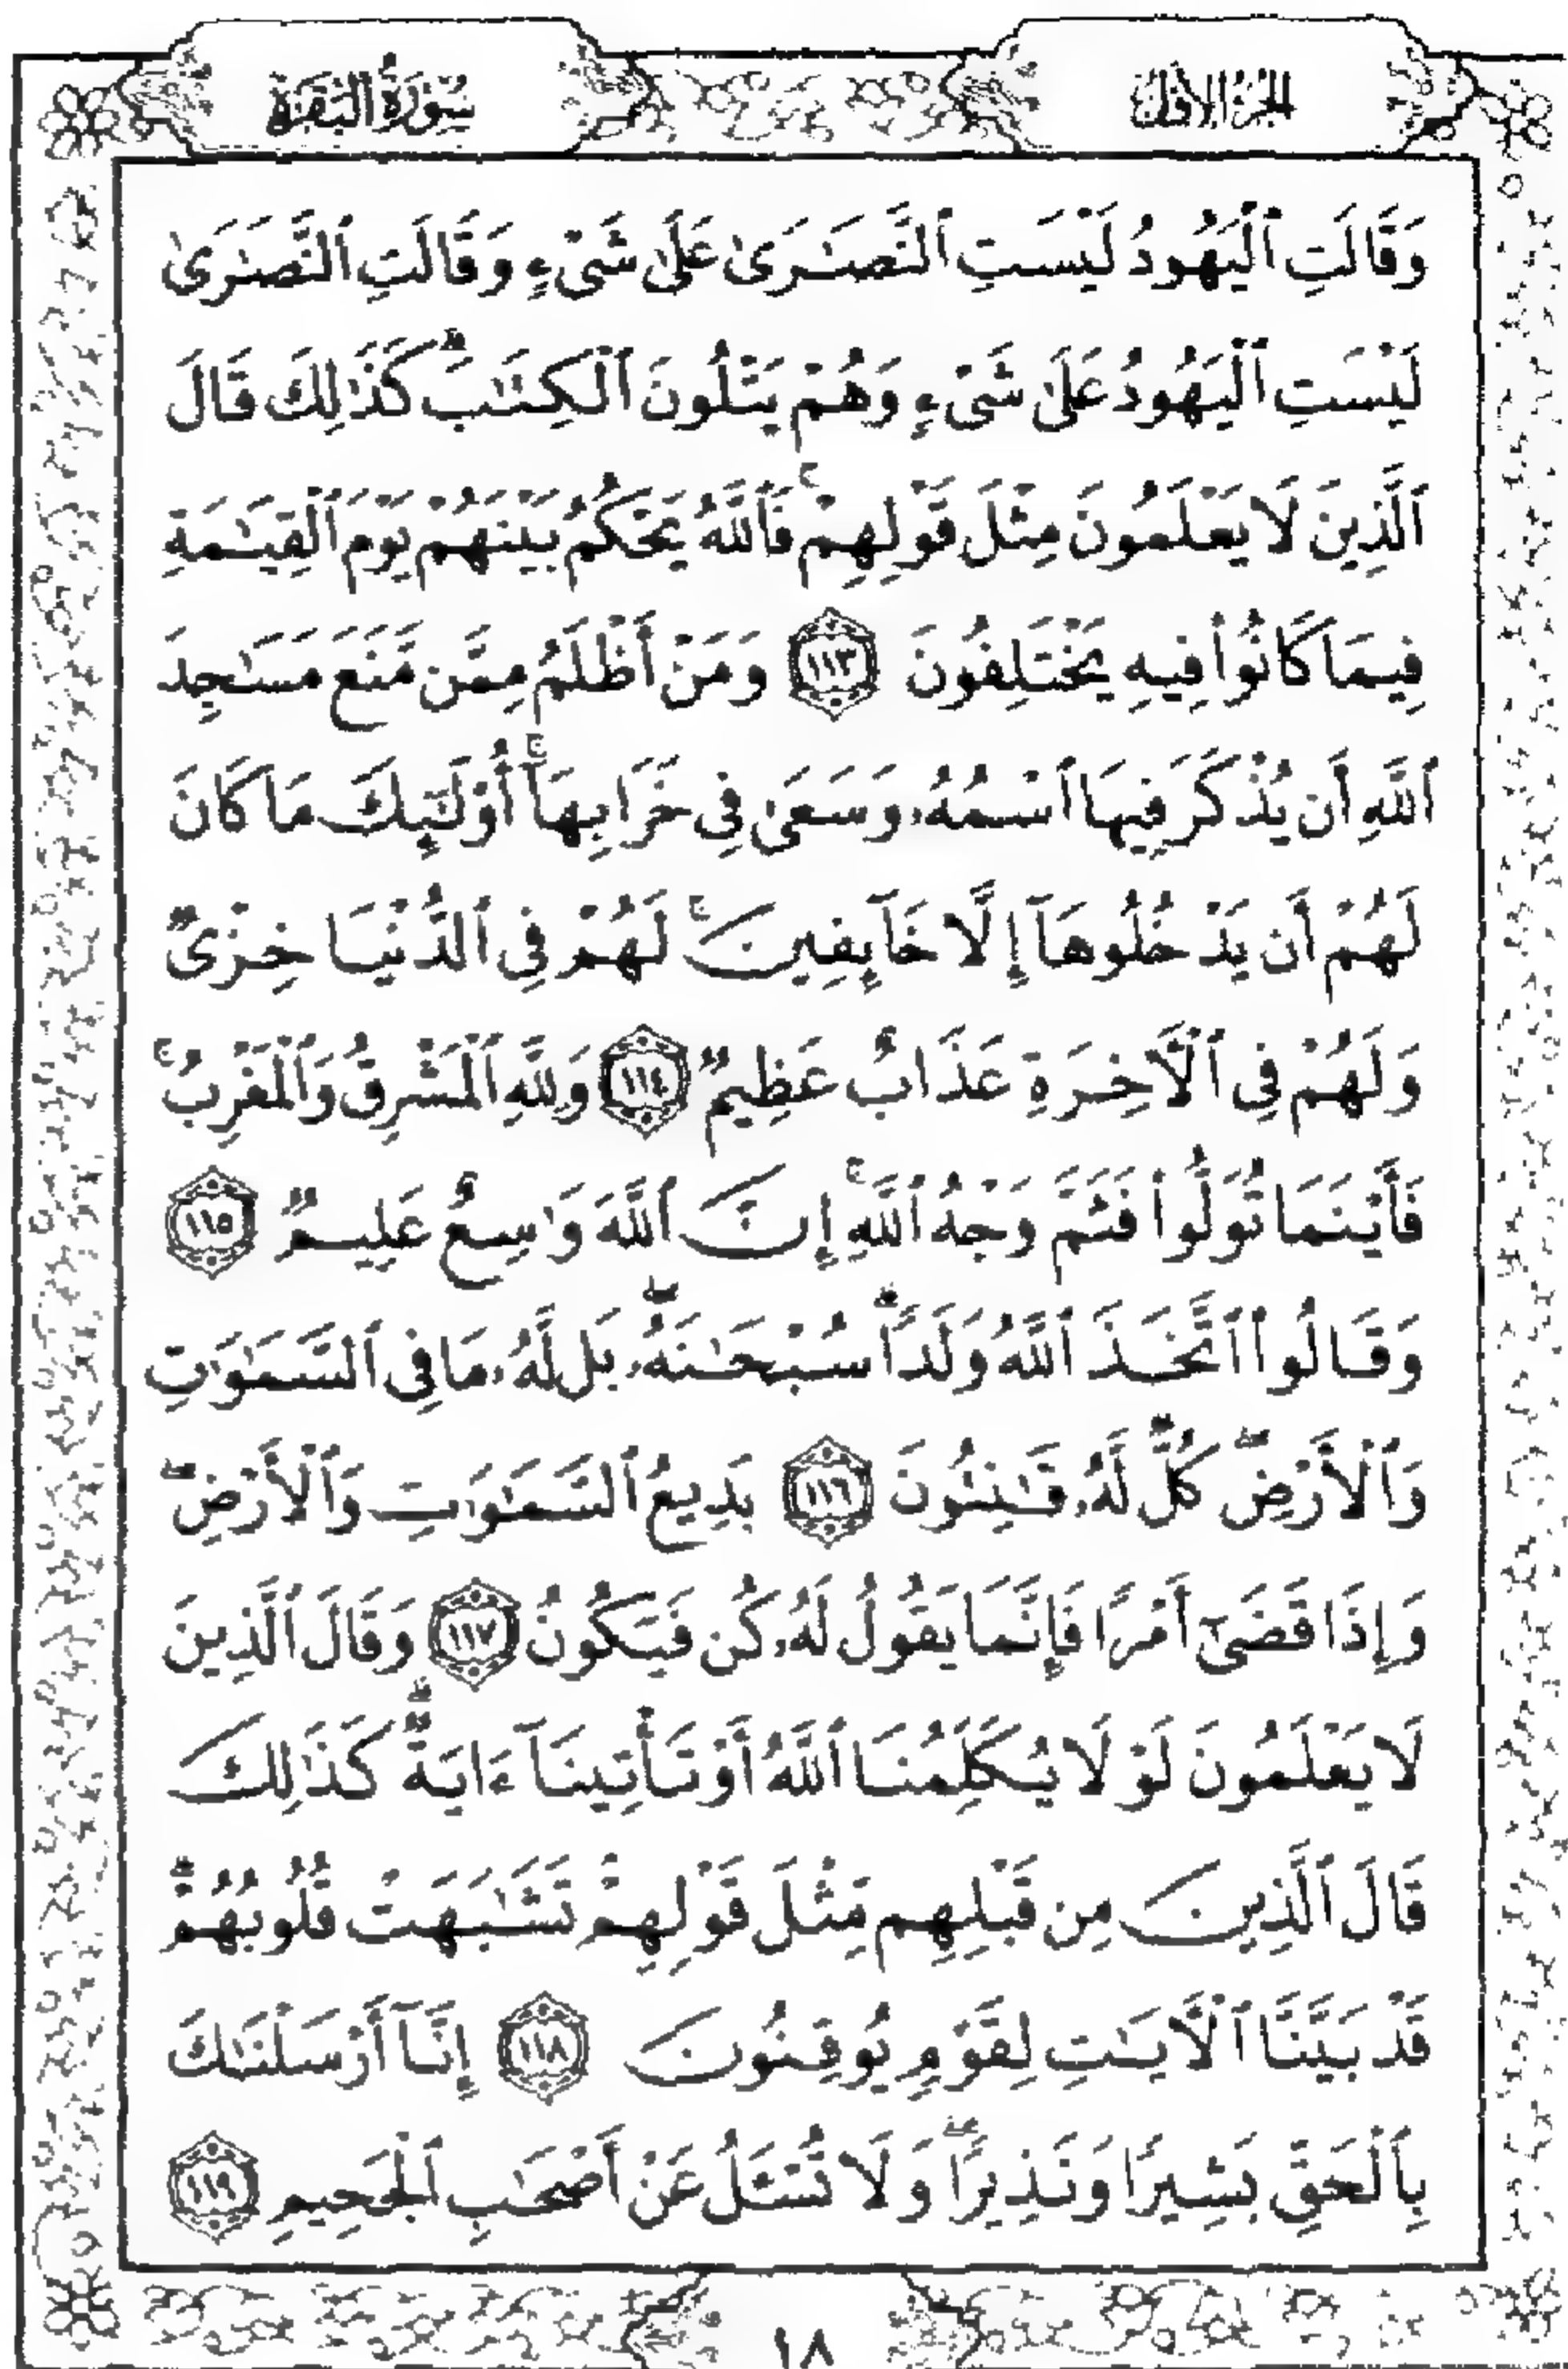 الجزء الأول
سورة البقرة
وَقَالَتِ ٱلْيَهُودُ لَيْسَتِ ٱلنَّصَٰرَىٰ عَلَىٰ شَىْءٍ وَقَالَتِ ٱلنَّصَٰرَىٰ
لَيْسَتِ ٱلْيَهُودُ عَلَىٰ شَىْءٍ وَهُمْ يَتْلُونَ ٱلْكِتَٰبَ ۗ كَذَٰلِكَ قَالَ
ٱلَّذِينَ لَا يَعْلَمُونَ مِثْلَ قَوْلِهِمْ ۚ فَٱللَّهُ يَحْكُمُ بَيْنَهُمْ يَوْمَ ٱلْقِيَٰمَةِ
فِيمَا كَانُوا۟ فِيهِ يَخْتَلِفُونَ ١١٣ وَمَنْ أَظْلَمُ مِمَّن مَّنَعَ مَسَٰجِدَ
ٱللَّهِ أَن يُذْكَرَ فِيهَا ٱسْمُهُۥ وَسَعَىٰ فِى خَرَابِهَآ ۚ أُو۟لَٰٓئِكَ مَا كَانَ
لَهُمْ أَن يَدْخُلُوهَآ إِلَّا خَآئِفِينَ ۚ لَهُمْ فِى ٱلدُّنْيَا خِزْىٌ
وَلَهُمْ فِى ٱلْأَخِرَةِ عَذَابٌ عَظِيمٌ ١١٤ وَلِلَّهِ ٱلْمَشْرِقُ وَٱلْمَغْرِبُ ۚ
فَأَيْنَمَا تُوَلُّوا۟ فَثَمَّ وَجْهُ ٱللَّهِ ۚ إِنَّ ٱللَّهَ وَٰسِعٌ عَلِيمٌ ١١٥
وَقَالُوا۟ ٱتَّخَذَ ٱللَّهُ وَلَدًا ۗ سُبْحَٰنَهُۥ ۖ بَل لَّهُۥ مَا فِى ٱلسَّمَٰوَٰتِ
وَٱلْأَرْضِ ۖ كُلٌّ لَّهُۥ قَٰنِتُونَ ١١٦ بَدِيعُ ٱلسَّمَٰوَٰتِ وَٱلْأَرْضِ ۖ
وَإِذَا قَضَىٰٓ أَمْرًا فَإِنَّمَا يَقُولُ لَهُۥ كُن فَيَكُونُ ١١٧ وَقَالَ ٱلَّذِينَ
لَا يَعْلَمُونَ لَوْلَا يُكَلِّمُنَا ٱللَّهُ أَوْ تَأْتِينَآ ءَايَةٌ ۗ كَذَٰلِكَ
قَالَ ٱلَّذِينَ مِن قَبْلِهِم مِّثْلَ قَوْلِهِمْ ۘ تَشَٰبَهَتْ قُلُوبُهُمْ ۗ
قَدْ بَيَّنَّا ٱلْأَيَٰتِ لِقَوْمٍ يُوقِنُونَ ١١٨ إِنَّآ أَرْسَلْنَٰكَ
بِٱلْحَقِّ بَشِيرًا وَنَذِيرًا ۖ وَلَا تُسْـَٔلُ عَنْ أَصْحَٰبِ ٱلْجَحِيمِ ١١٩
١٨